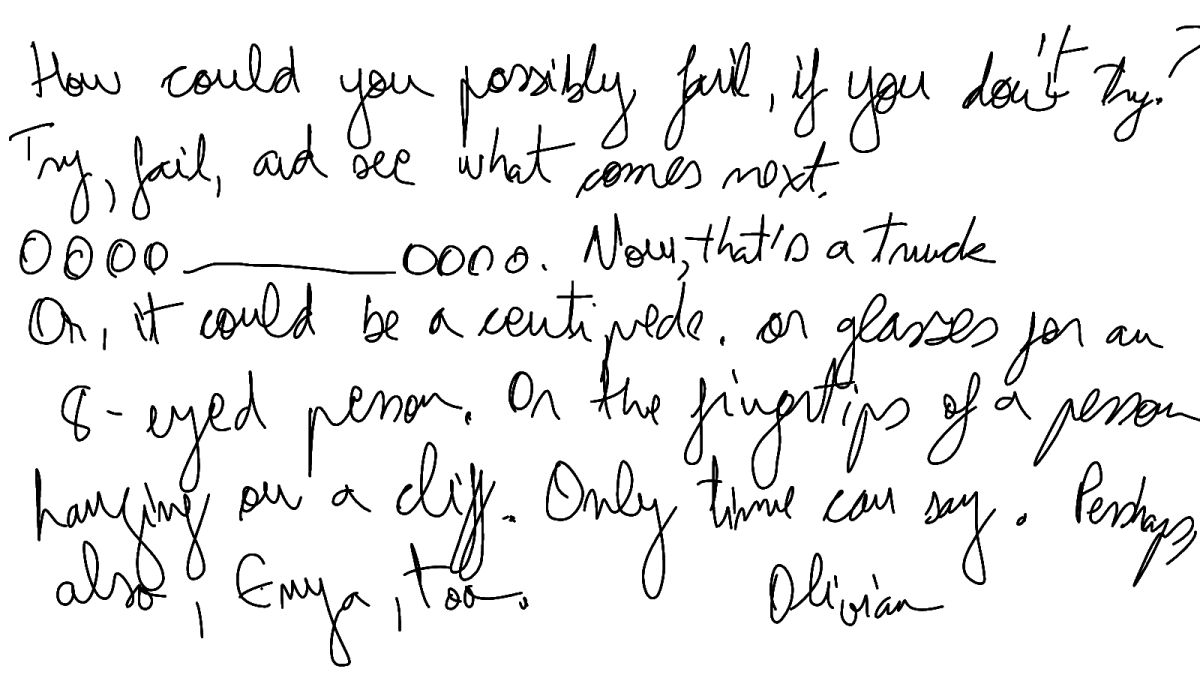 How could you possibly fail, if you don't try?
Try, fail, and see what comes next.
0000______0000. Now, that's a truck
Or, it could be a centipede. or glasses for an
8-eyed person. Or the fingertips of a person
hanging on a cliff. Only time can say. Perhaps,
also, Enya, too. Olivian